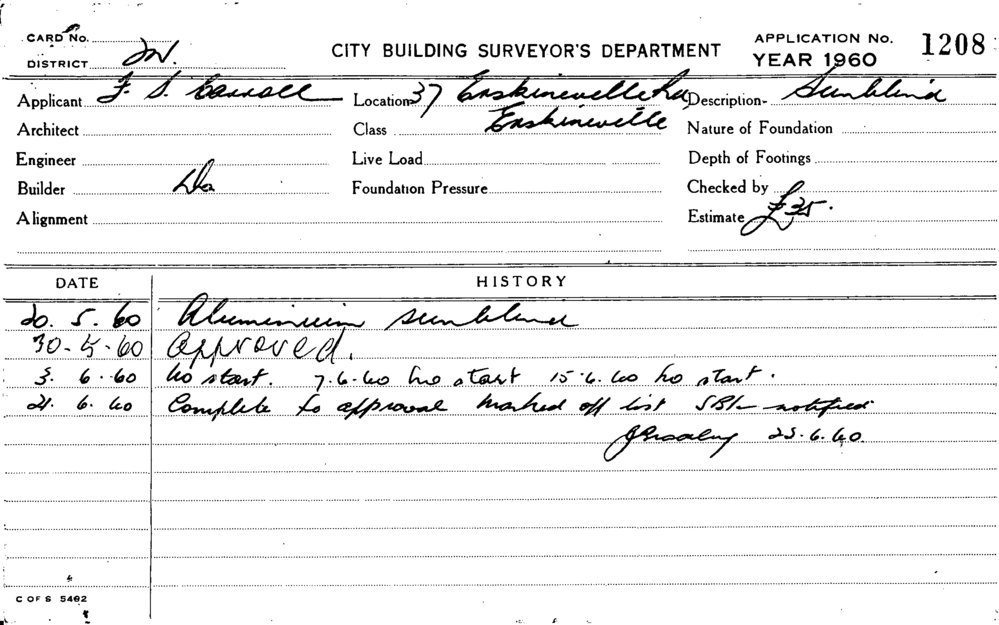 CARD No.
DISTRICT
CITY BUILDING SURVEYOR'S DEPARTMENT
APPLICATION No. 1208
YEAR 1960
Applicant F. S. Carroll Location 37 Erskineville Rd, Description- Sunblind
Architect Class Erskineville Nature of Foundation
Engineer Live Load Depth of Footings
Builder Do Foundation Pressure Checked by
Alignment Estimate £35.
DATE HISTORY
20. 5. 60 Aluminium sunblind
30-5-60 Approved.
3. 6. 60 No start. 7-6-60 No start 15.6.60 No start.
21. 6. 60 Complete to approval marked off list notified
23.6.60.
C OF S 5462